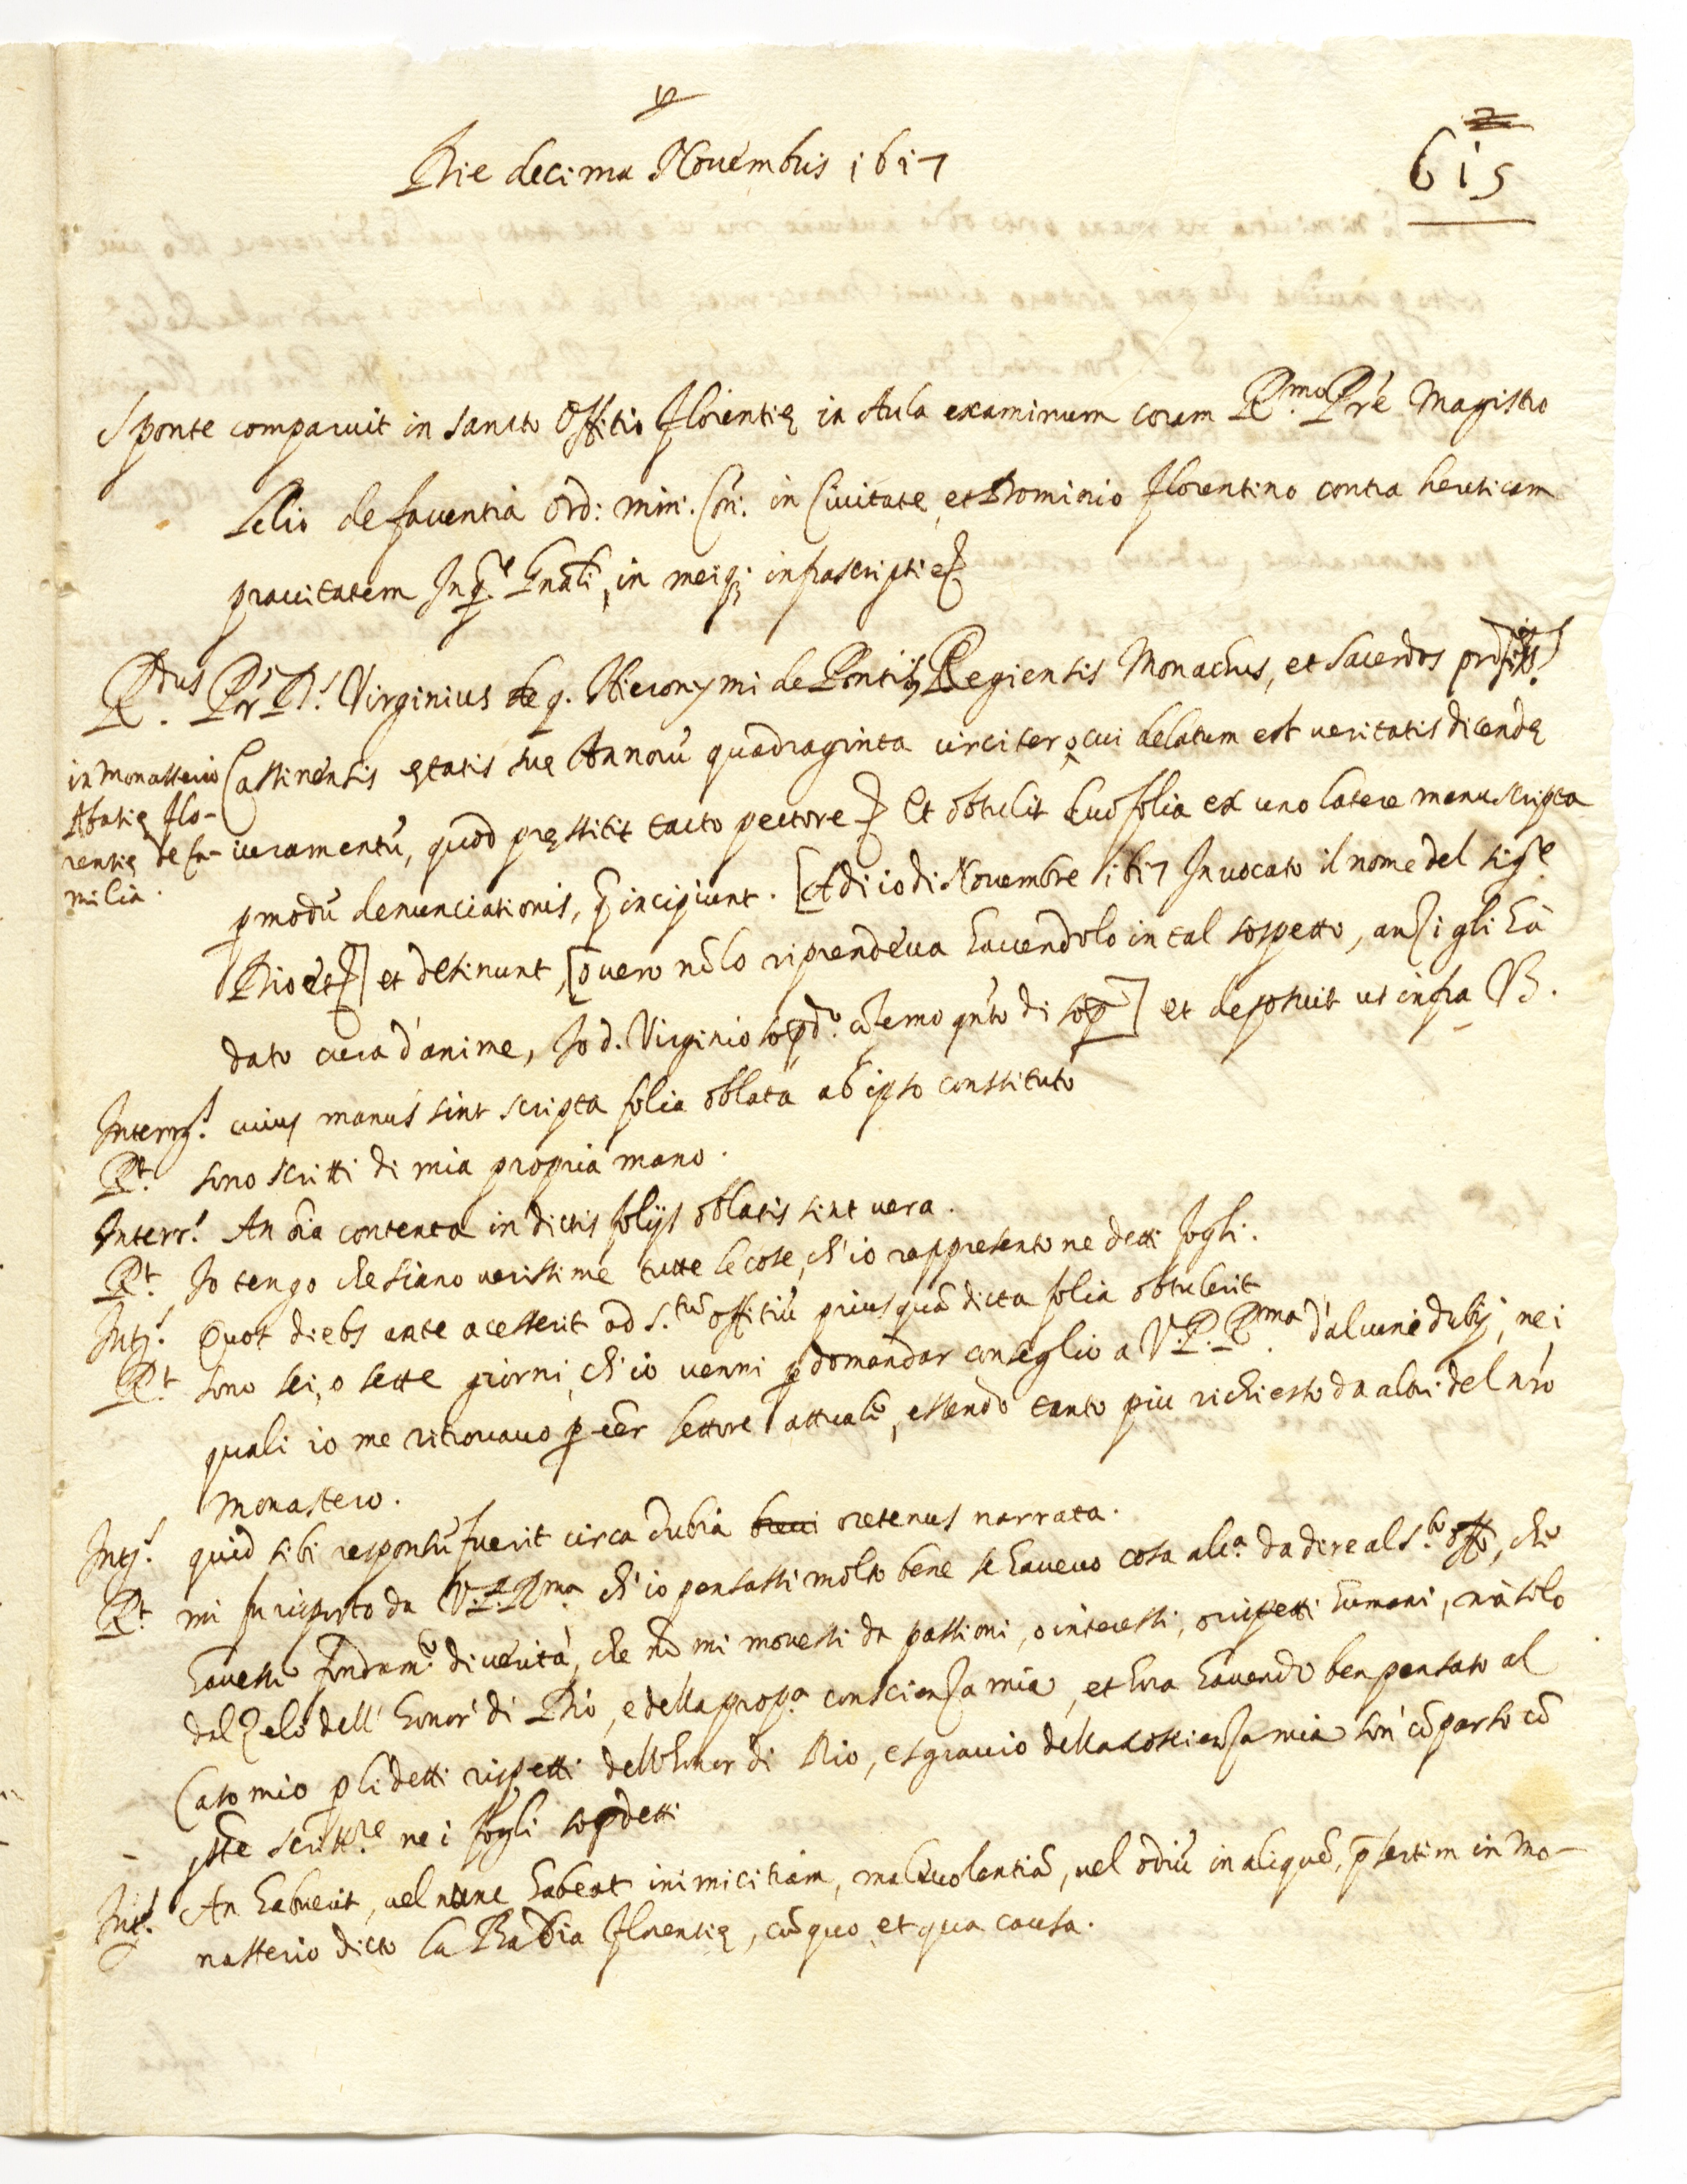 Die decima Novembris 1617
615
Sponte comparuit in sancto Offitio Florentię in Aula examinum coram R.mo Pre Magistro
Lelio de faventia ord: min: Con: in Civitate, et Dominio Florentino contra hereticam
pravitatem Inq.re Gnali, in meiq; infrascripti etc
R.dus Pr D. Virginius q. Hieronymi de Pontijs Regiensis Monachus, et Sacerdos professus
Castinensis ętatis suę Annorũ quadraginta circiter, cui delatum est veritatis dicendę
in Monasterio
Abatię Flo-
rentię de fa-
milia.
iuramentũ, quod pręstitit tacto pectore etc Et obtulit duo folia ex uno latere manuscripta
p modũ denunciationis, q incipiunt. [Adi 10 di Novembre 1617 Invocato il nome del sig.re
Dio etc] et desinunt, [overo nõ lo riprendeva havendolo in tal sospetto, anzi gli hà
dato cura d'anime, Io d. Virginio sopd.o cõfermo qnto di sop.a] et deposuit ut infra V3.
Interrg.s cuius manus sint scripta folia oblata ab ipso constituto
R.t sono scritti di mia propria mano.
Interr.s An oia contenta in dictis folijs oblatis sint vera.
R.t Io tengo che siano verissime tutte le cose, ch'io rappresento ne detti fogli.
Int.s Quot diebs ante acesserit ad S.tũ offitiũ priusquã dicta folia obtulerit
R.t sono sei, o sette giorni, ch'io venni p domandar conseglio a V.P.R.ma d'alcuni dubij, nei
quali io me ritrovavo p eer lettore attuale, essendo tanto piu richiesto da altri del nro
Monastero.
Int.s quid sibi responsũ fuerit circa dubia oretenus narrata.
R.t mi fu risposto da V.P.R.ma ch'io pensassi molto bene se havevo cosa alc.a da dire al S.to offo, che
havesse fondam.o di verità, che nõ mi movessi da passioni, o interessi, o rispetti humani, mà solo
dal zelo dell'honor di Dio, e della prop.a conscienza mia, et hora havendo ben pensato al
Caso mio p li detti rispetti dell'honor di Dio, e sgravio della coscienza mia son cõparso cõ
q.ste scritt.re nei fogli sopdetti
Int.s An habuerit, vel nunc habeat inimicitiam, malivolentiã, vel odiũ in aliquẽ, p̃sertim in Mo-
nasterio dicto la Badia Florentię, cũ quo, et qua causa.